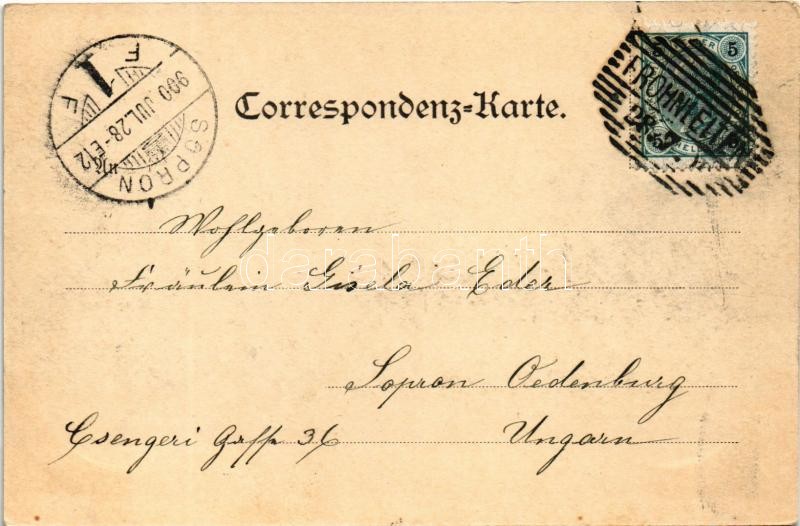 SOPRON
900 JUL. 28 - E12
F 1 F
5
FROHNLEITEN
Correspondenz=Karte.
Wohlgeboren
Fräulein Gisela Eder
Sopron Oedenburg
Csengeri Gasse 36 Ungarn
darabanth